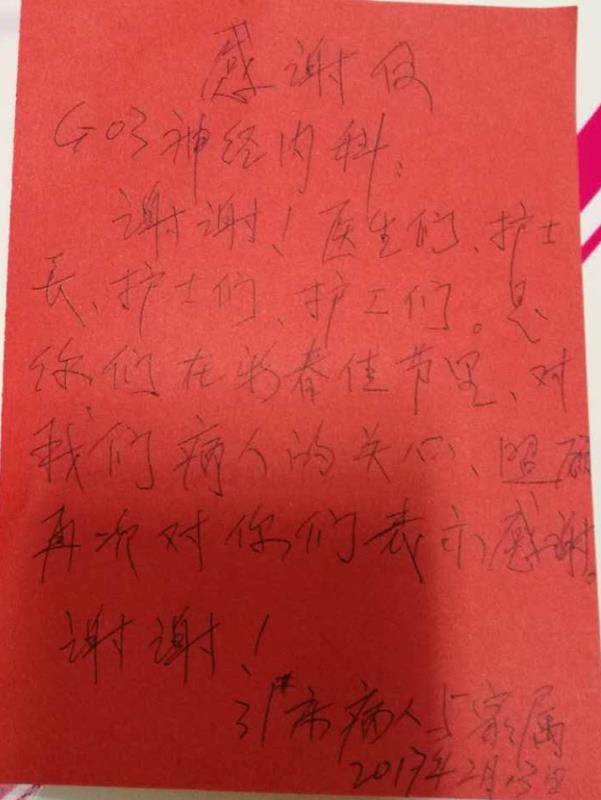 感谢信
G03神经内科：
谢谢！医生们、护士
长、护士们、护工们。是
你们在新春佳节里、对
我们病人的关心、照顾
再次对你们表示感谢。
谢谢！
病人与家属
2017年2月3日